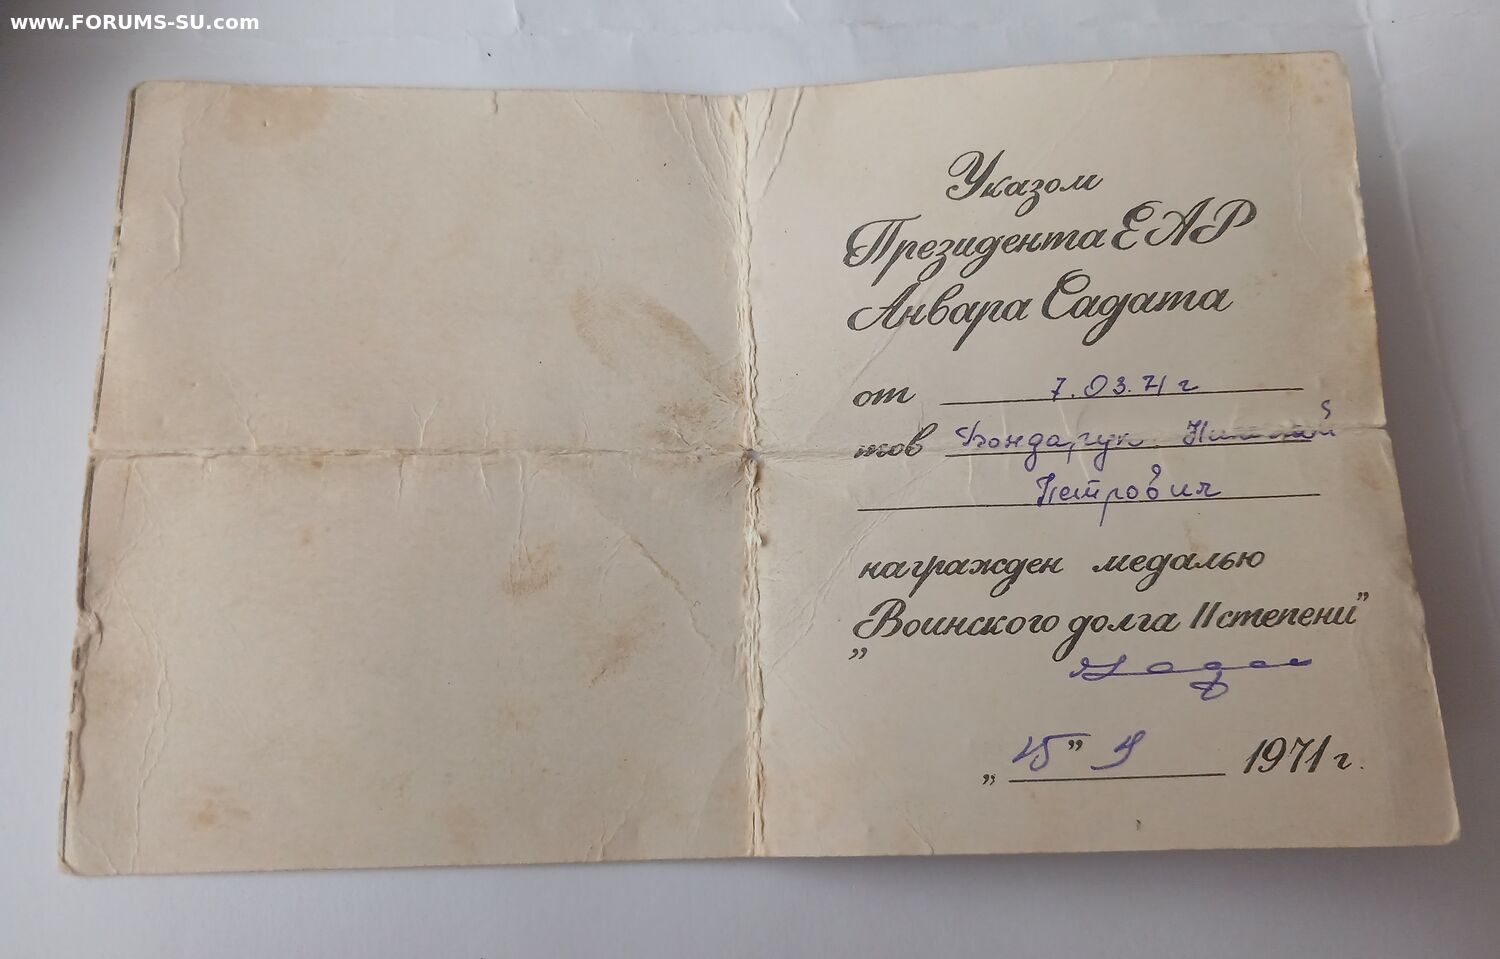 www.FORUMS-SU.com
Указом
Президента ЕАР
Анвара Садата
от 7.03.71 г
тов Бондарчук Николай
Петрович
награжден медалью
„Воинского долга II степени”
„15” 9 1971 г.